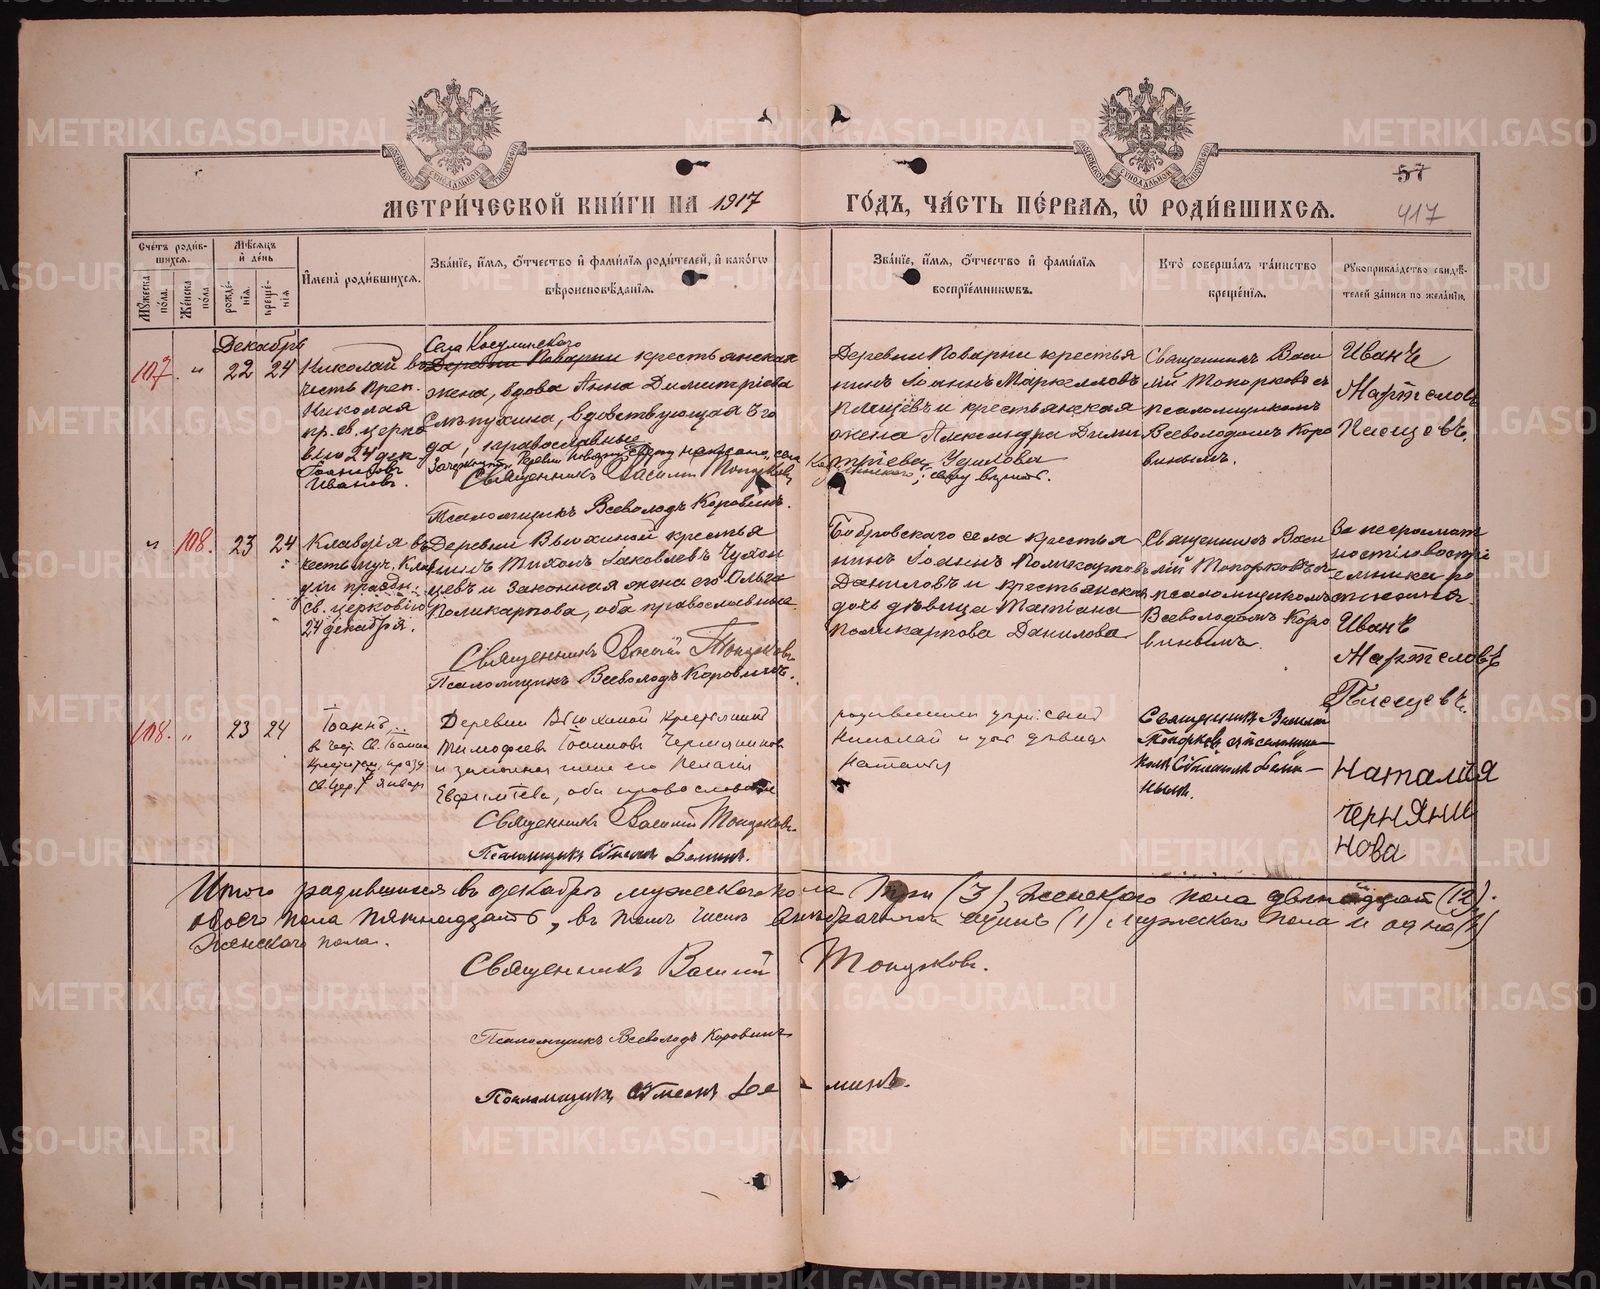 МЕТРИ́ЧЕСКОЙ КНИ́ГИ НА 1917 ГО́ДЪ, ЧА́СТЬ ПЕ́РВАЯ, Ѡ РОДИ́ВШИХСЯ.
57
417
Сче́тъ роди́вшихся.
Му́жеска по́ла.
Же́нска по́ла.
Мѣ́сяцъ и҆ де́нь
рожде́нія.
креще́нія
И҆мена̀ роди́вшихся.
Зва́ніе, и҆́мя, ѻ҆́тчество и҆ фами́лія роди́телей, и҆ како́гѡ
вѣроисповѣ́данія.
Зва́ніе, и҆́мя, ѻ҆́тчество и҆ фами́лія
воспріе́мникѡвъ.
Кто̀ соверша́лъ та́инство
креще́нія.
Рꙋкоприкла́дство свидѣ́телей за́писи по жела́нію.
Декабрь
107. " 22 24
Николай въ
честь преп.
Николая
пр. св. церко
вію 24 дек.
Іоанновъ
Ивановъ.
Села Косулинскаго
Деревни Поварни крестьянская
жена, вдова Анна Димитріева
Слѣпухина, вдовствующая 3 го
да, православные
Священникъ Василій Топорковъ
Псаломщикъ Всеволодъ Коровинъ.
Деревни Поварни крестья
нинъ Іоаннъ Маркелловъ
Писцёвъ и крестьянская
жена Александра Дими
тріева Удилова
Священникъ Васи
лій Топорковъ съ
псаломщикомъ
Всеволодомъ Коро
винымъ.
Иванъ
Мартеловъ
Писцовъ.
" 108. 23 24
Клавдія въ
честь муч. Клав
діи праздн.
св. церковію
24 декабря.
Деревни Вьюхиной крестья
нинъ Тихонъ Іаковлевъ Чухон
цевъ и законная жена его Ольга
Поликарпова, оба православные
Священникъ Василій Топорковъ
Псаломщикъ Всеволодъ Коровинъ.
Бобровскаго села крестья
нинъ Іоаннъ Поликарповъ
Даниловъ и крестьянская
дочь дѣвица Татіана
Поликарпова Данилова
Священникъ Васи
лій Топорковъ съ
псаломщикомъ
Всеволодомъ Коро
винымъ.
За неграмот
ностію воспрі
емника ро
Иванъ
Мартеловъ
Писцевъ.
108. " 23 24
Іоаннъ
в чест. Св. Іоанна
Крестителя, празд
Св. Цер. 7 Января
Деревни Вьюхиной крестьянинъ
Тимофей Іоанновъ Чернянинов
и законная жена его Пелагия
Евфиміева, оба православные
Священникъ Василій Топорковъ.
Псаломщикъ
Николай и дѣвица
Наталія
Священникъ Василій
Топорковъ съ псаломщи
комъ
Наталія
Черняни
нова
Итого родившихся въ декабрѣ мужескаго пола три (3), женскаго пола двѣнадцать (12).
обоего пола пятнадцать, въ томъ числѣ внѣбрачныхъ одинъ (1) мужескаго пола и одна (1)
женскаго пола.
Священникъ Василій Топорковъ.
Псаломщикъ Всеволодъ Коровинъ
Псаломщикъ
METRIKI.GASO-URAL.RU